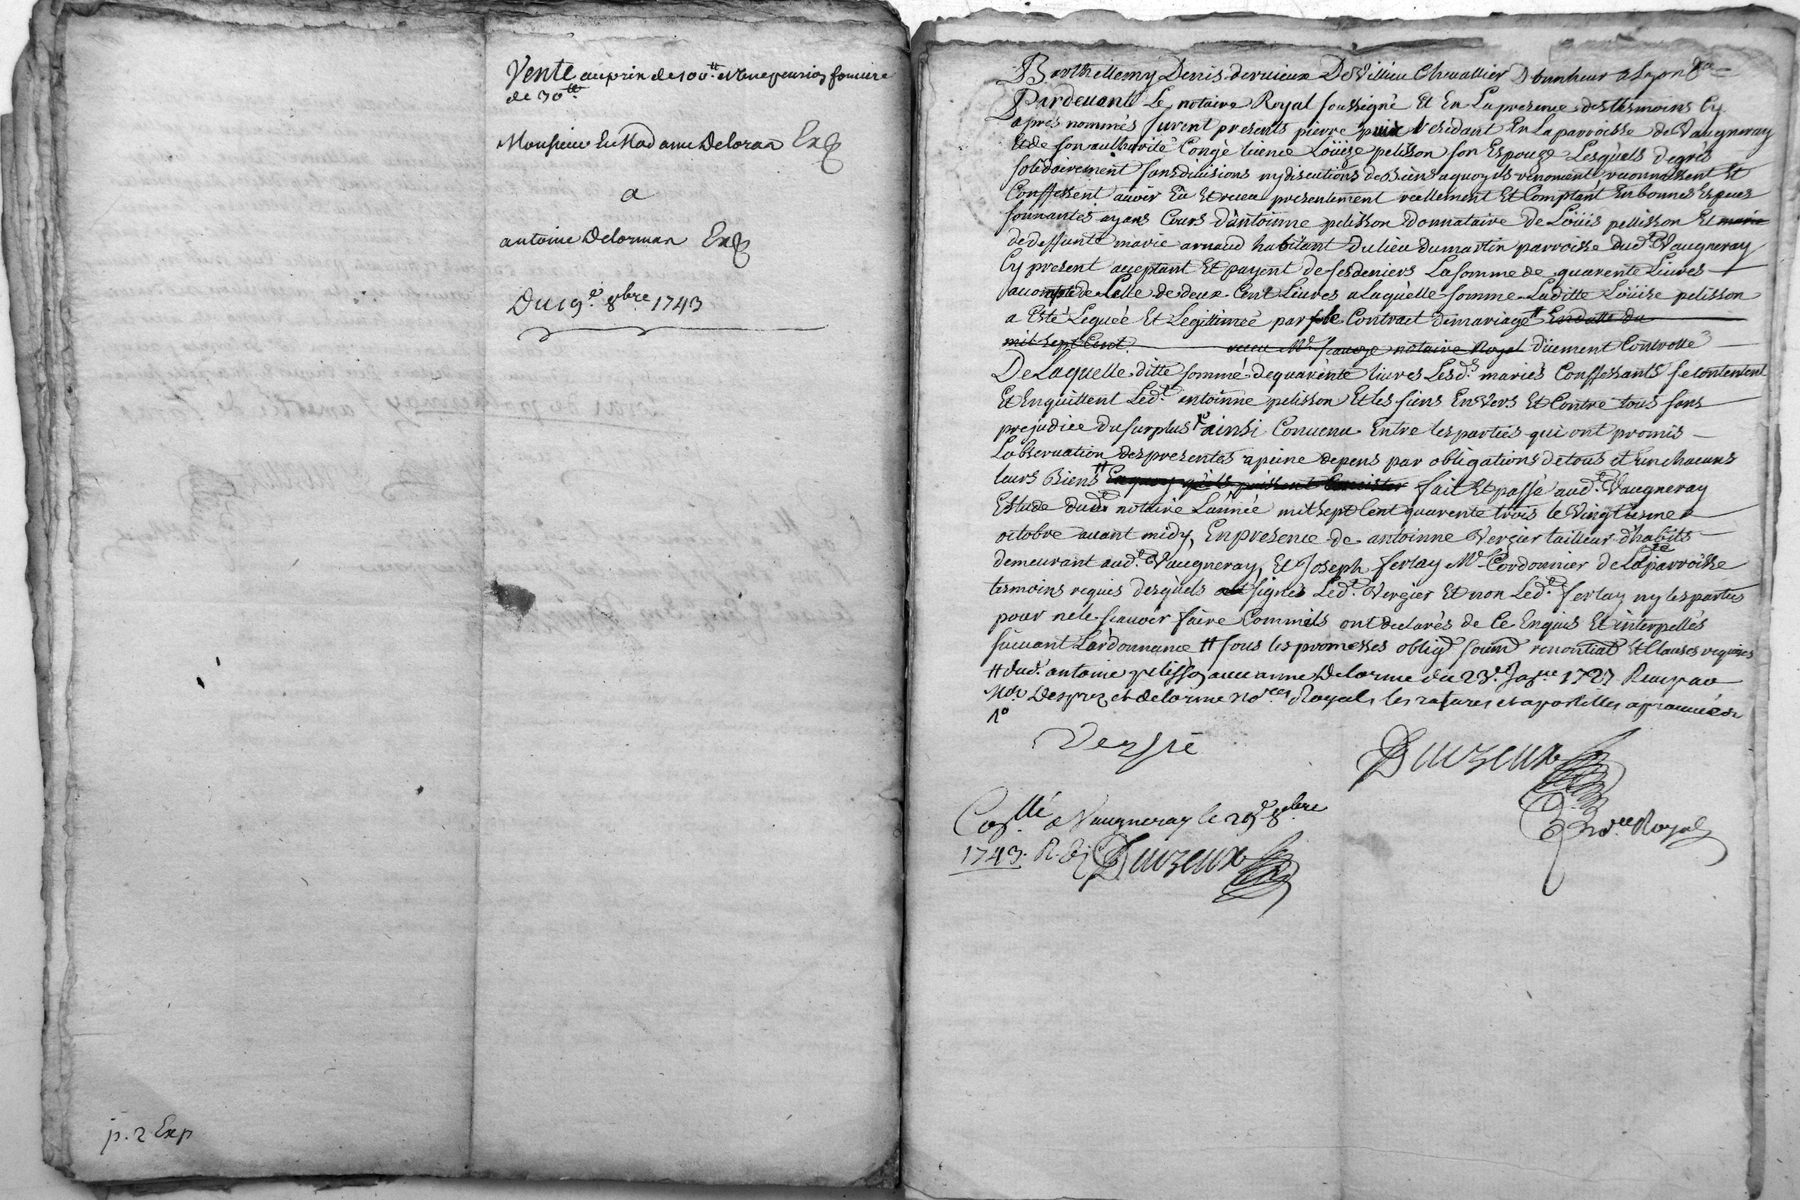 Vente au prix de 100ᵗᵗ et une pension fonciere
de 30ᵗᵗ
Monsieur et Madame Deloras Exp
a
antoine Delorman Exp
Du 19ᵉ 8bre 1743
p. 2 Exp
Barthellemy Denis dervieux De Villieu Chevallier D honneur a Lyon &ca
Pardevant Le notaire Royal soussigné Et En La presence des tesmoins Cy
apres nommés furent presents pierre residant En La parroisse de Vaugneray
Et de son authorité Congé licence Loüize pelisson son Espouze Lesquels de grés
solidairement sans divisions ny discutions de biens a quoy ils renoncent reconnaissent Et
Confessent avoir Eu Et receu presentement reellement Et Comptant En bonnes Especes
sonnantes ayans Cours D'antoinne pelisson donnataire de Loüis pellisson Et marie
de deffunte marie arnaud habitant du lieu du martin parroisse dud. Vaugneray
Cy present acceptant Et payent de ses deniers La somme de quarente Livres
acompte de Celle de deux Cent Livres a Laquelle somme Laditte Loüise pelisson
a Esté Leguée Et Legitimée par le Contract de mariage ⁺⁺ En datte du
mil sept Cent receu Mᵉ notaire Royal düement Controllé
De Laquelle ditte somme de quarente livres Lesd. mariés Confessants se Contentent
Et En quittent Led. antoinne pelisson Et les siens Envers Et Contre tous sans
prejudice du surplus ainsi Convenu Entre les parties qui ont promis
Lobservation des presentes a peine depens par obligations de tous et un chacuns
leurs Biens ⁺⁺ En quoy qu'ils puissent Consister fait Et passé aud. Vaugneray
Estude dudit notaire L'année mil sept Cent quarente trois le Vingtiesme
octobre avant midy, En presence de antoinne Vergier tailleur d'habits
demeurant aud. Vaugneray, Et Joseph ferlay Mᵉ Cordonnier de Ladᵗᵉ parroisse
tesmoins requis desquels a signés Led. Vergier Et non Led. ferlay ny les parties
pour ne le scavoir faire Comm'ils ont declarés de Ce Enquis Et interpellés
suivant Lordonnance ++ sous les promesses oblig soum renontiat Et Clauses requises
++ dud. antoine pelisson avec anne Delorme du 23ᵉ 1727 Receu par
Mes Desprez et delorme noʳᵉˢ Royal, les ratures et apostilles aprouvées
Versié
Dervieux
noʳᵉ Royal
Coˡˡé a Vaugneray le 29ᵉ 8bre
1743. R. Dervieux